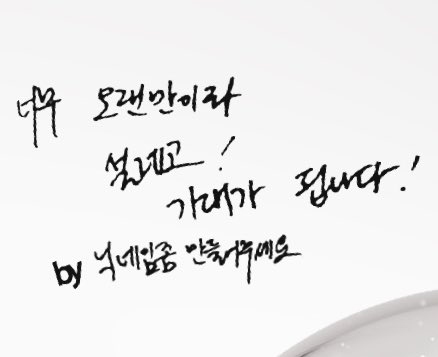 너무 오랜만이라
설레고!
기대가 됩니다!
by 닉네임좀 만들어주세요